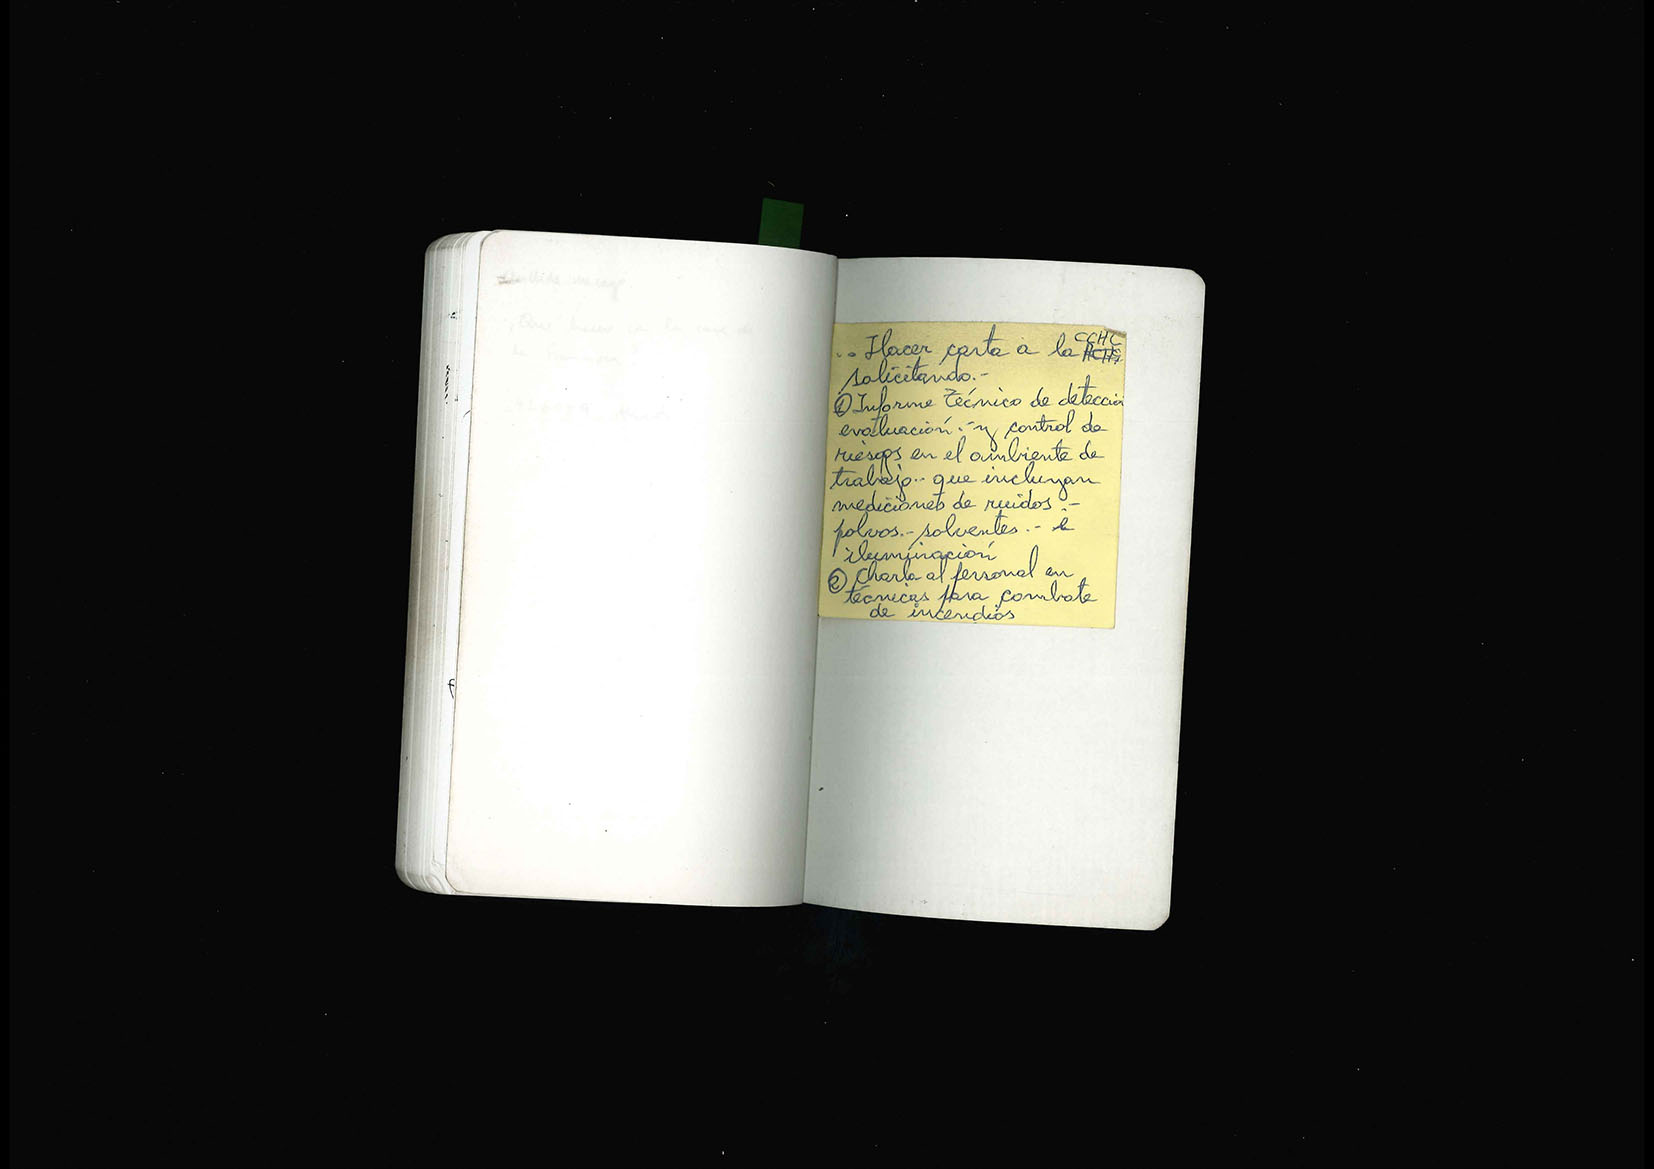 ¿Qué hacer
.. Hacer carta a la CCHC ACHS
solicitando.-
① Informe Técnico de detección
evaluación.- y control de
riesgos en el ambiente de
trabajo.- que incluyan
mediciones de ruidos.-
polvos.- solventes.- e
iluminación
② Charla al personal en
técnicas para combate
de incendios